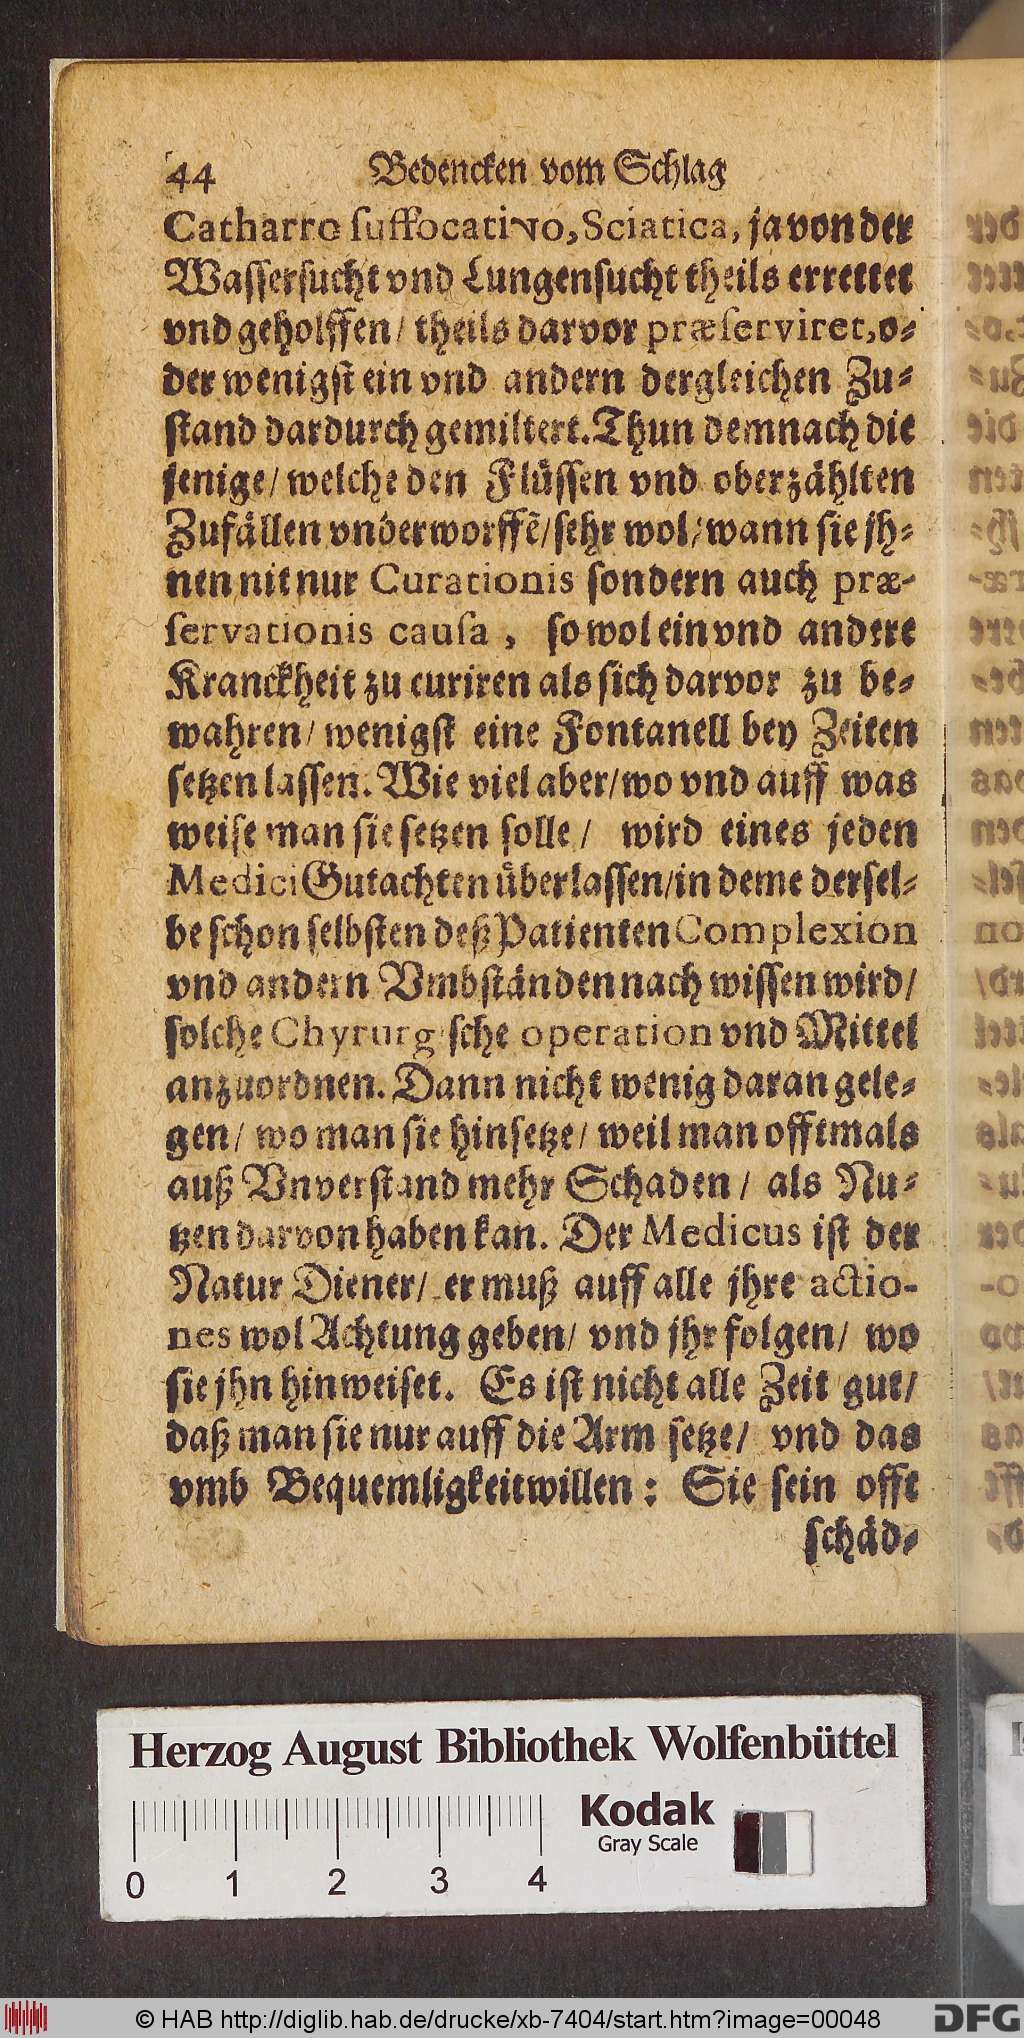 44 Bedencken vom Schlag
Catharro ſuffocativo, Sciatica, ja von der
Waſſerſucht vnd Lungenſucht theils errettet
vnd geholffen / theils darvor præſerviret, o-
der wenigſt ein vnd andern dergleichen Zu-
ſtand dardurch gemiltert. Thun demnach die
jenige / welche den Flüſſen vnd oberzählten
Zufällen vnderworffẽ / ſehr wol / wann ſie jh-
nen nit nur Curationis ſondern auch præ-
ſervationis cauſa, ſo wol ein vnd andere
Kranckheit zu curiren als ſich darvor zu be-
wahren / wenigſt eine Fontanell bey Zeiten
ſetzen laſſen. Wie viel aber / wo vnd auff was
weiſe man ſie ſetzen ſolle / wird eines jeden
Medici Gutachten überlaſſen / in deme derſel-
be ſchon ſelbſten deß Patienten Complexion
vnd andern Vmbſtänden nach wiſſen wird /
ſolche Chyrurgiſche operation vnd Mittel
anzuordnen. Dann nicht wenig daran gele-
gen / wo man ſie hinſetze / weil man offtmals
auß Vnverſtand mehr Schaden / als Nu-
tzen darvon haben kan. Der Medicus iſt der
Natur Diener / er muß auff alle jhre actio-
nes wol Achtung geben / vnd jhr folgen / wo
ſie jhn hinweiſet. Es iſt nicht alle Zeit gut /
daß man ſie nur auff die Arm ſetze / vnd das
vmb Bequemligkeit willen : Sie ſein offt
ſchäd-
Herzog August Bibliothek Wolfenbüttel
Kodak
Gray Scale
0 1 2 3 4
© HAB http://diglib.hab.de/drucke/xb-7404/start.htm?image=00048
DFG